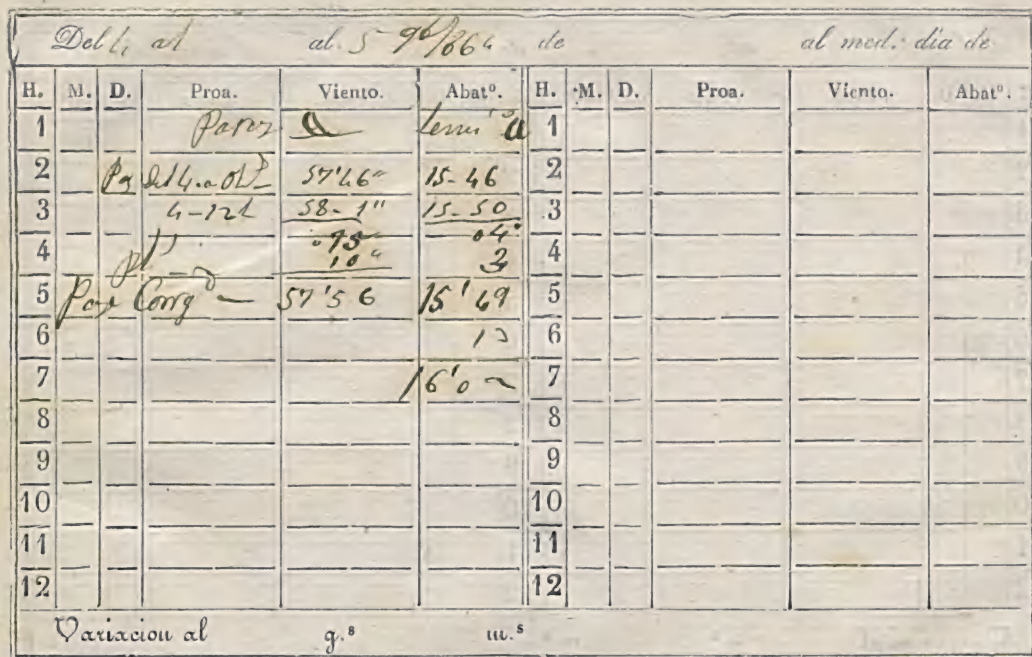 Del 4 al al 5 9b/864 de al med. dia de
H. M. D. Proa. Viento. Abatº. H. M. D. Proa. Viento. Abatº.
1 1
2 57'46" 15-46 2
3 4-12 58-1" 15-50 3
4 15" 04" 4
10" 3
5 Corrg 57'56 15'49 5
6 6
7 16'0 7
8 8
9 9
10 10
11 11
12 12
Variacion al g.s m.s